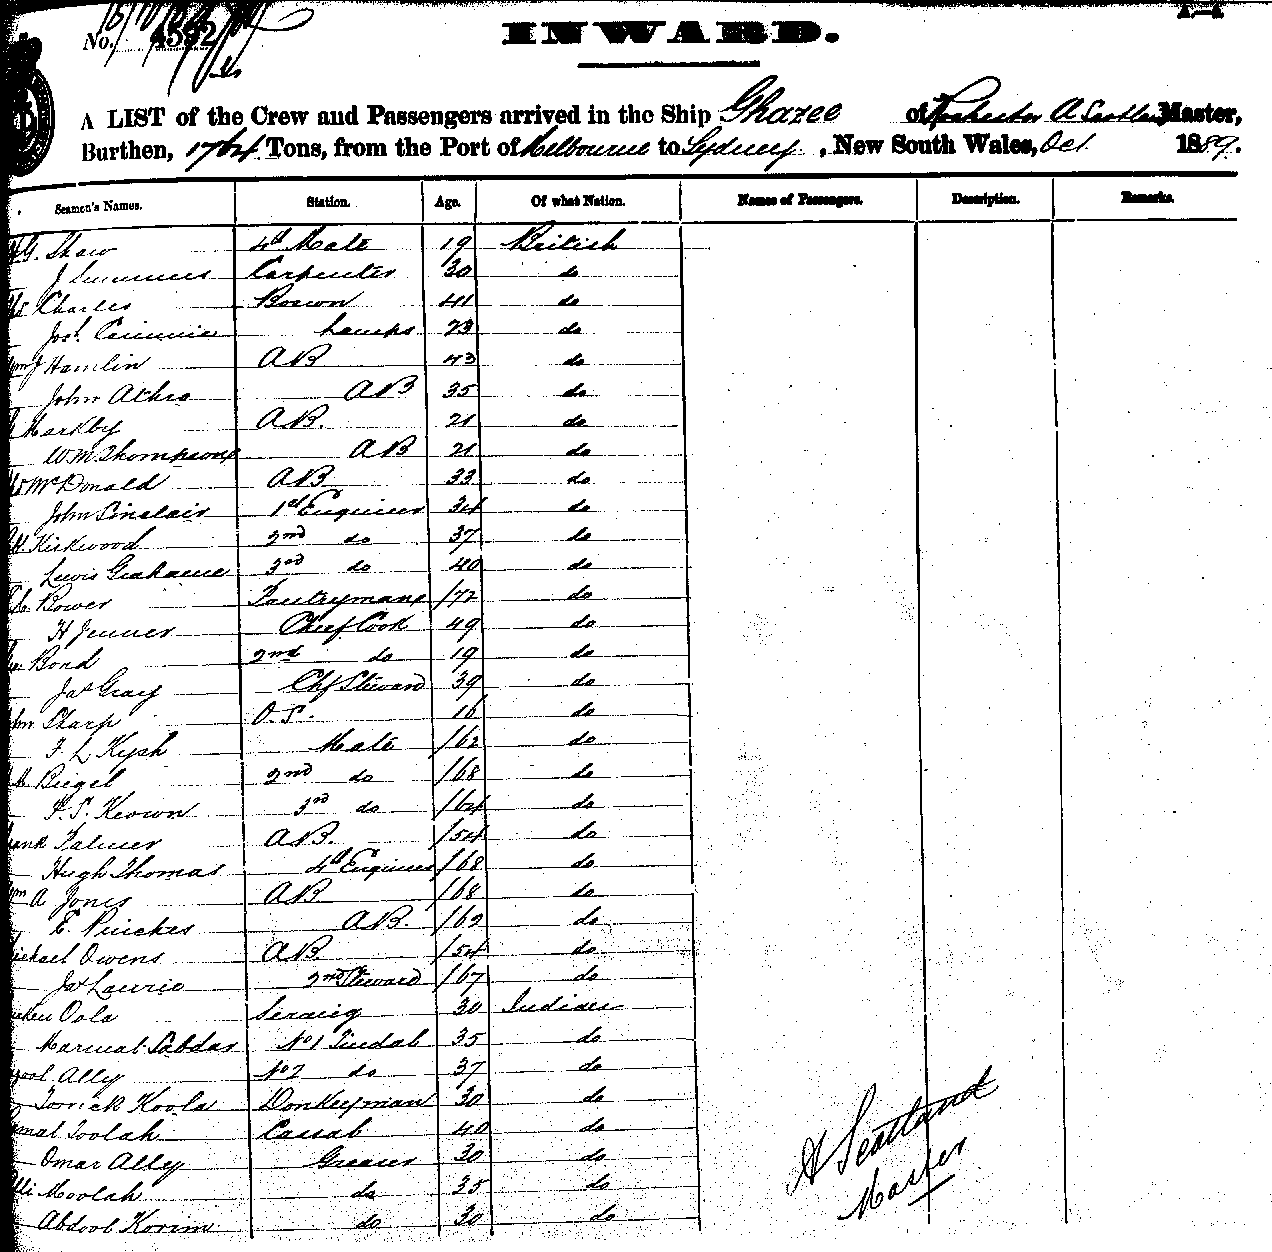 No. 4392
INWARD.
A LIST of the Crew and Passengers arrived in the Ship Ghazee of A Scotland Master,
Burthen, 1764 Tons, from the Port of Melbourne to Sydney, New South Wales, Oct 1889.
Seamen's Names. Station. Age. Of what Nation. Names of Passengers. Description. Remarks.
G. Shaw 4th Mate 19 British
J Summers Carpenter 30 do
Charles Bosun 41 do
Josh. Lamps 23 do
J Hamlin AB 43 do
John AB 35 do
Markby AB. 21 do
Wm Thompson AB 21 do
McDonald AB 33 do
John Sinclair 1st Engineer 34 do
H. Kirkwood 2nd do 37 do
Lewis Grahame 3rd do 40 do
Bower Pantryman /72 do
H Jenner Chief Cook 49 do
Bond 2nd do 19 do
Jas Gray Chf Steward 39 do
Sharp O.S. 16 do
F L Kysh Mate /62 do
Biegel 2nd do /68 do
P. S. Keown 3rd do /64 do
Palmer AB. /54 do
Hugh Thomas 4th Engineer /68 do
A Jones AB /68 do
E. Pinches AB. /62 do
Michael Owens AB /54 do
Jas Lawrie 2nd Steward /67 do
Oola Serang 30 Indian
Sabdar No1 Tindal 35 do
Ally No2 do 37 do
Torrick Koola Donkeyman 30 do
Toolah Cassab 40 do
Omar Ally Greaser 30 do
Moolah do 35 do
Abdool Korim do 30 do
A Scotland
Master